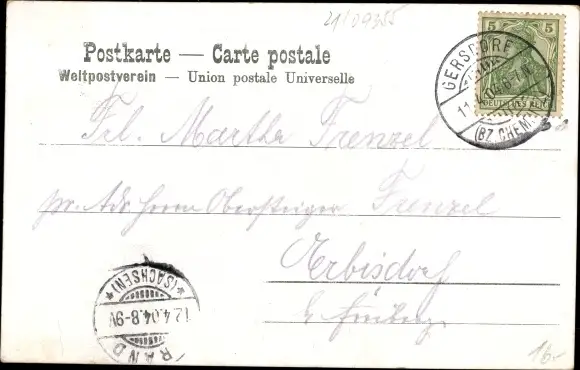 21/09355
Postkarte — Carte postale
Weltpostverein — Union postale Universelle
5 5
DEUTSCHES REICH
GERSDORF
11.4.04.
(BZ. CHEM
Frl. Martha Frenzel
pr. Adr. Herrn Obersteiger Frenzel
Erbisdorf
b.
*(SACHSEN)*
12.4.04.8-9V
BRAND
16.-